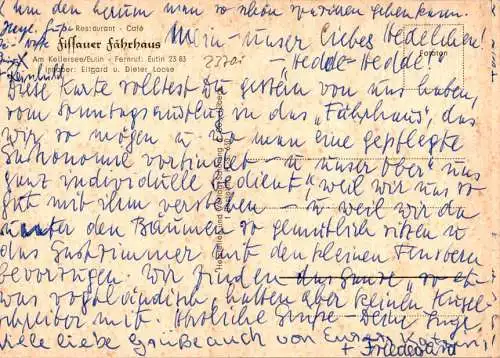 u um den herum man so schön spazieren gehen kann.
Restaurant - Café
Fissauer Fährhaus
Am Kellersee/Eutin - Fernruf: Eutin 23 83
Inhaber: Ellgard u. Dieter Loose
Mein - unser liebes Hedelchen!
- Hedde - Hedde!
Diese Karte solltest Du gestern von uns haben,
vom Sonntagsausflug in das "Fährhaus", das
wir so mögen u. wo man eine gepflegte
Gastronomie vorfindet - u unser "Ober" uns
ganz individuelle bedient weil wir uns so
gut mit ihm verstehen - u weil wir da
unter den Bäumen so gemütlich sitzen u
das Gastzimmer mit den kleinen Fenstern
bevorzugen. Wir finden das Ganze so et-
was vogtländisch, hatten aber keinen Kugel-
schreiber mit Herzliche Grüße - Deine Inge
viele liebe Grüße auch von Eurem
+ Friedehard